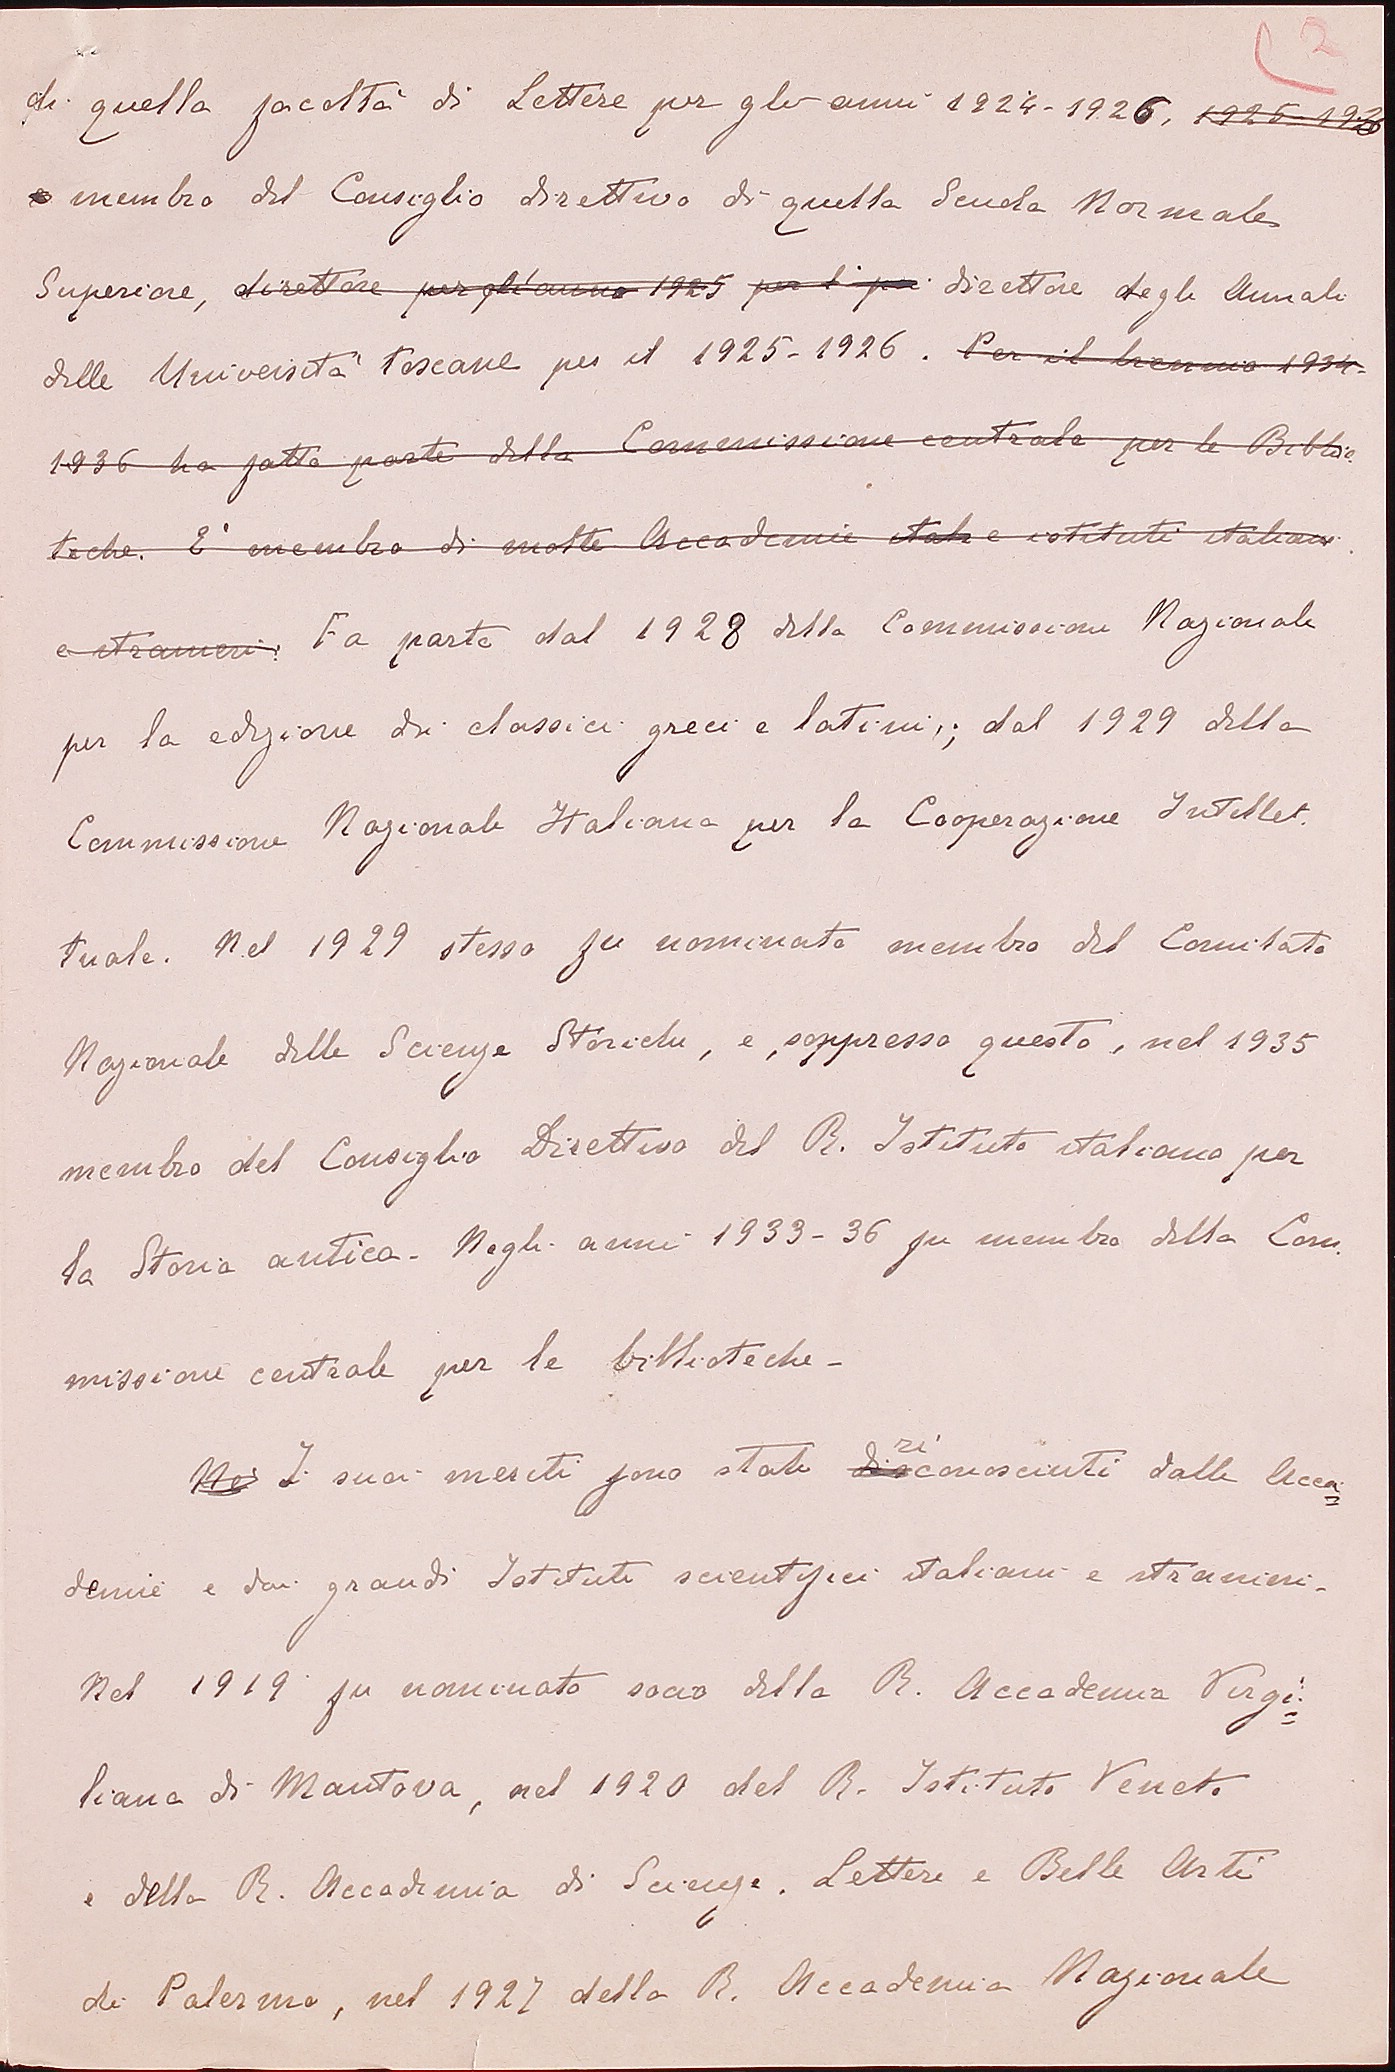 2
di quella facoltà di Lettere per gli anni 1924-1926, 1925-1926
e membro del Consiglio direttivo di quella Scuola Normale
Superiore, direttore per gli anno 1925 per i poi direttore degli Annali
delle Università toscane per il 1925-1926. Per il biennio 1934-
1936 ha fatto parte della Commissione centrale per le Biblio
teche. E' membro di molte Accademie itali e istituti italiani
e stranieri. Fa parte dal 1928 della Commissione Nazionale
per la edizione di classici greci e latini,; dal 1929 della
Commissione Nazionale Italiana per la Cooperazione Intellet.
tuale. Nel 1929 stesso fu nominato membro del Comitato
Nazionale delle Scienze Storiche, e, soppresso questo, nel 1935
membro del Consiglio Direttivo del R. Istituto italiano per
la Storia antica. Negli anni 1933-36 fu membro della Com.
missione centrale per le biblioteche-
ri
Noi I suoi meriti sono stati disconosciuti dalle Acca=
demie e dai grandi Istituti scientifici italiani e stranieri-
Nel 1919 fu nominato socio della R. Accademia Virgi=
liana di Mantova, nel 1920 del R. Istituto Veneto
e della R. Accademia di Scienze. Lettere e Belle Arti
di Palermo, nel 1927 della R. Accademia Nazionale